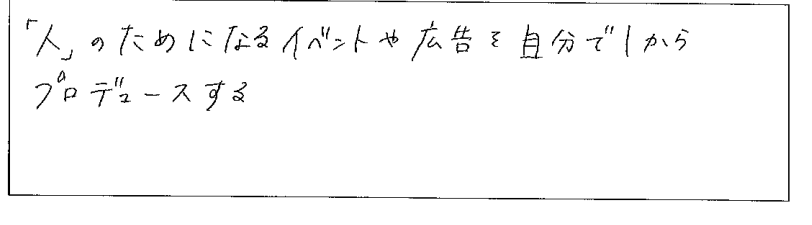 「人」のためになるイベントや広告を自分で1から
プロデュースする